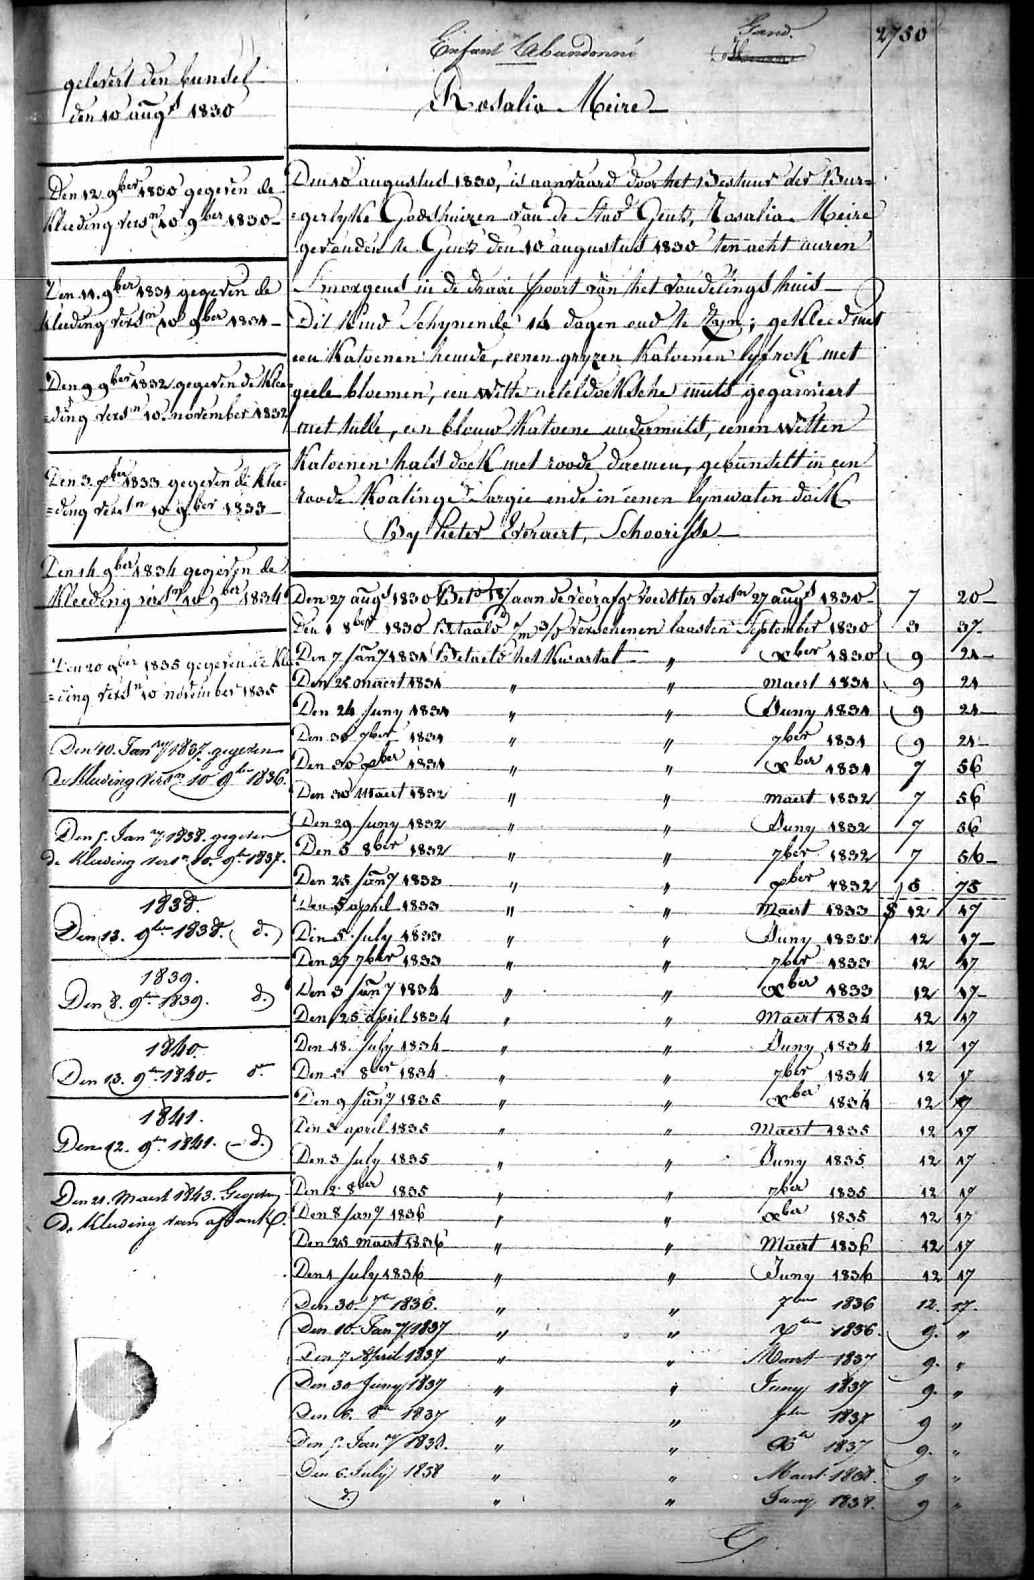 Enfant Abandonné
Gand.
2750
Rosalia Meire
gelevert den bundel
den 10 augs 1830
Den 12 9ber 1830 gegeven de
kleeding versn 10 9ber 1830
Den 11. 9ber 1831 gegeven de
kleeding versn 10 9ber 1831
Den 9 9ber 1832 gegeven de klee=
=ding versn 10. november 1832
Den 3. xber 1833 gegeven de klee=
=ding versn 10 9ber 1833
Den 14 9ber 1834 gegeven de
kleeding versn 10 9ber 1834
Den 20 9ber 1835 gegeven de klee
=ding versn 10 november 1835
Den 10. Jany 1837. gegeven
de kleeding versn 10 9ber 1836.
Den 5. Jany 1838. gegeven
de kleeding versn 10. 9br 1837.
1838.
Den 13. 9ber 1838. (d.)
1839.
Den 8. 9br 1839. d.)
1840.
Den 13. 9br 1840. do
1841.
Den 12. 9br 1841. - d.)
Den 21. Maert 1843. Gegeven
de kleeding van afstand.
Den 10 augustus 1830, is aanvaard door het Bestuur der Bur=
=gerlyke Godshuizen van de Stad Gend, Rosalia Meire
gevonden te Gend den 10 augustus 1830 ten acht uuren
Smorgens in de draai poort van het vondelings huis
Dit kind Schynende 14 dagen oud te zyn; gekleed met
een katoenen hemde, eenen gryzen katoenen lyfrok met
geele bloemen, een witte neteldoeksche muts gegarniert
met tulle, een blouw katoene ondermuts, eenen witten
katoenen hals doek met roode diemen, gebundelt in een
roode koatinge Sargie ende in eenen lynwaten doek
By Pieter Everaert, Schoorisse
Den 27 augs 1830 Beto 18/ aan de voorafge voedster versn 27 augs 1830 7 20
Den 1 8ber 1830 Betaald 7/m 3/o verschenen laasten September 1830 3 37
Den 7 Jany 1831 Betaeld het kwartal " xber 1830 9 21
Den 25 maert 1831 " " maert 1831 9 21
Den 24 Juny 1831 " " Juny 1831 9 21
Den 30 7ber 1831 " " 7ber 1831 9 21
Den 30 xber 1831 " " xber 1831 7 56
Den 30 Maert 1832 " " maert 1832 7 56
Den 29 Juny 1832 " " Juny 1832 7 56
Den 5 8ber 1832 " " 7ber 1832 7 56
Den 25 Jany 1833 " " xber 1832 5 75
Den 5 april 1833 " " Maert 1833 $ 12 17
Den 5 July 1833 " " Juny 1833 12 17
Den 27 7ber 1833 " " 7ber 1833 12 17
Den 3 Jany 1834 " " xber 1833 12 17
Den 25 april 1834 " " Maert 1834 12 17
Den 18 July 1834 " " Juny 1834 12 17
Den 2 8ber 1834 " " 7ber 1834 12 17
Den 9 Jany 1835 " " xber 1834 12 17
Den 3 april 1835 " " Maert 1835 12 17
Den 3 July 1835 " " Juny 1835 12 17
Den 2 8ber 1835 " " 7ber 1835 12 17
Den 8 Jany 1836 " " xber 1835 12 17
Den 25 maert 1836 " " Maert 1836 12 17
Den 1 July 1836 " " Juny 1836 12 17
Den 30. 7br 1836. " " 7ber 1836 12. 17.
Den 10. Jany 1837 " " xber 1836. 9. "
Den 7 April 1837 " " Maert 1837 9. "
Den 30 Juny 1837 " " Juny 1837 9. "
Den 6. 8br 1837 " " 7ber 1837 9 "
Den 5. Jany 1838. " " Xbr 1837 9. "
Den 6. July 1838 " " Maert 1838. 9 "
d.) " " Juny 1838. 9 "